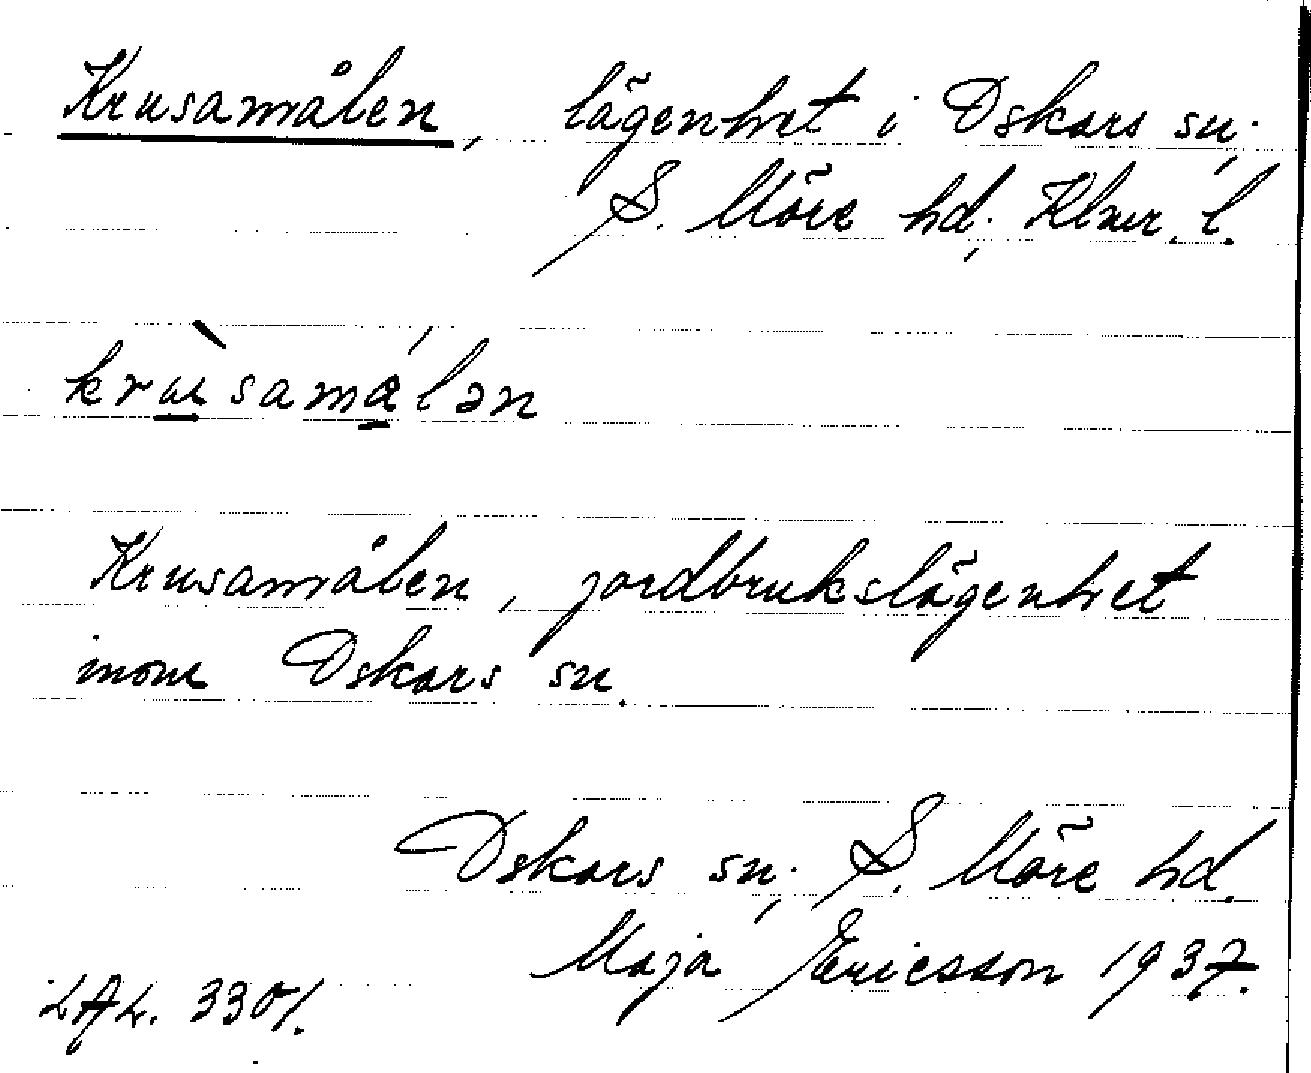 Krusamålen, lägenhet i Oskars sn;
S. Möre hd; Klmr. l.
krùsamálən
Krusamålen, jordbrukslägenhet
inom Oskars sn.
Oskars sn; S. Möre hd.
Maja Ericsson 1937.
LAL. 3301.